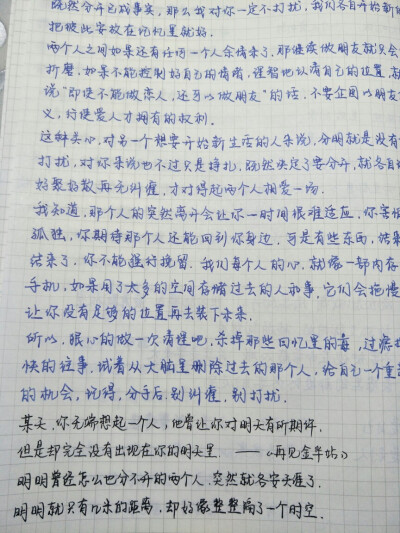 既然分开已成事实，那么我对你一定不打扰，我们各自开始新的
把彼此安放在记忆里就好。
两个人之间如果还有任何一个人余情未了，那继续做朋友就只会
折磨，如果不能控制好自己的情绪，理智地认清自己的位置，就
说“即使不能做恋人，还可以做朋友”的话，不要企图以朋友
义，行使爱人才拥有的权利。
这种关心，对另一个想要开始新生活的人来说，分明就是没有
打扰，对你来说也不过只是挣扎，既然决定了要分开，就各自
好聚好散再无纠缠，才对得起两个人相爱一场。
我知道，那个人的突然离开会让你一时间很难适应，你害怕
孤独，你期待那个人还能回到你身边，可是有些东西，结束
结束了，你不能强行挽留，我们每个人的心，就像一部内存
手机，如果用了太多的空间存储过去的人和事，它们会拖慢
让你没有足够的位置再去装下未来。
所以，狠心的做一次清理吧，杀掉那些回忆里的毒，过滤掉
快的往事，试着从大脑里删除过去的那个人，给自己一个重
的机会，记得，分手后，别纠缠，别打扰。
某天，你无端想起一个人，他曾让你对明天有所期许，
但是却完全没有出现在你的明天里。——《再见金华站》
明明曾经怎么也分不开的两个人，突然就各安天涯了，
明明就只有几米的距离，却好像整整隔了一个时空。